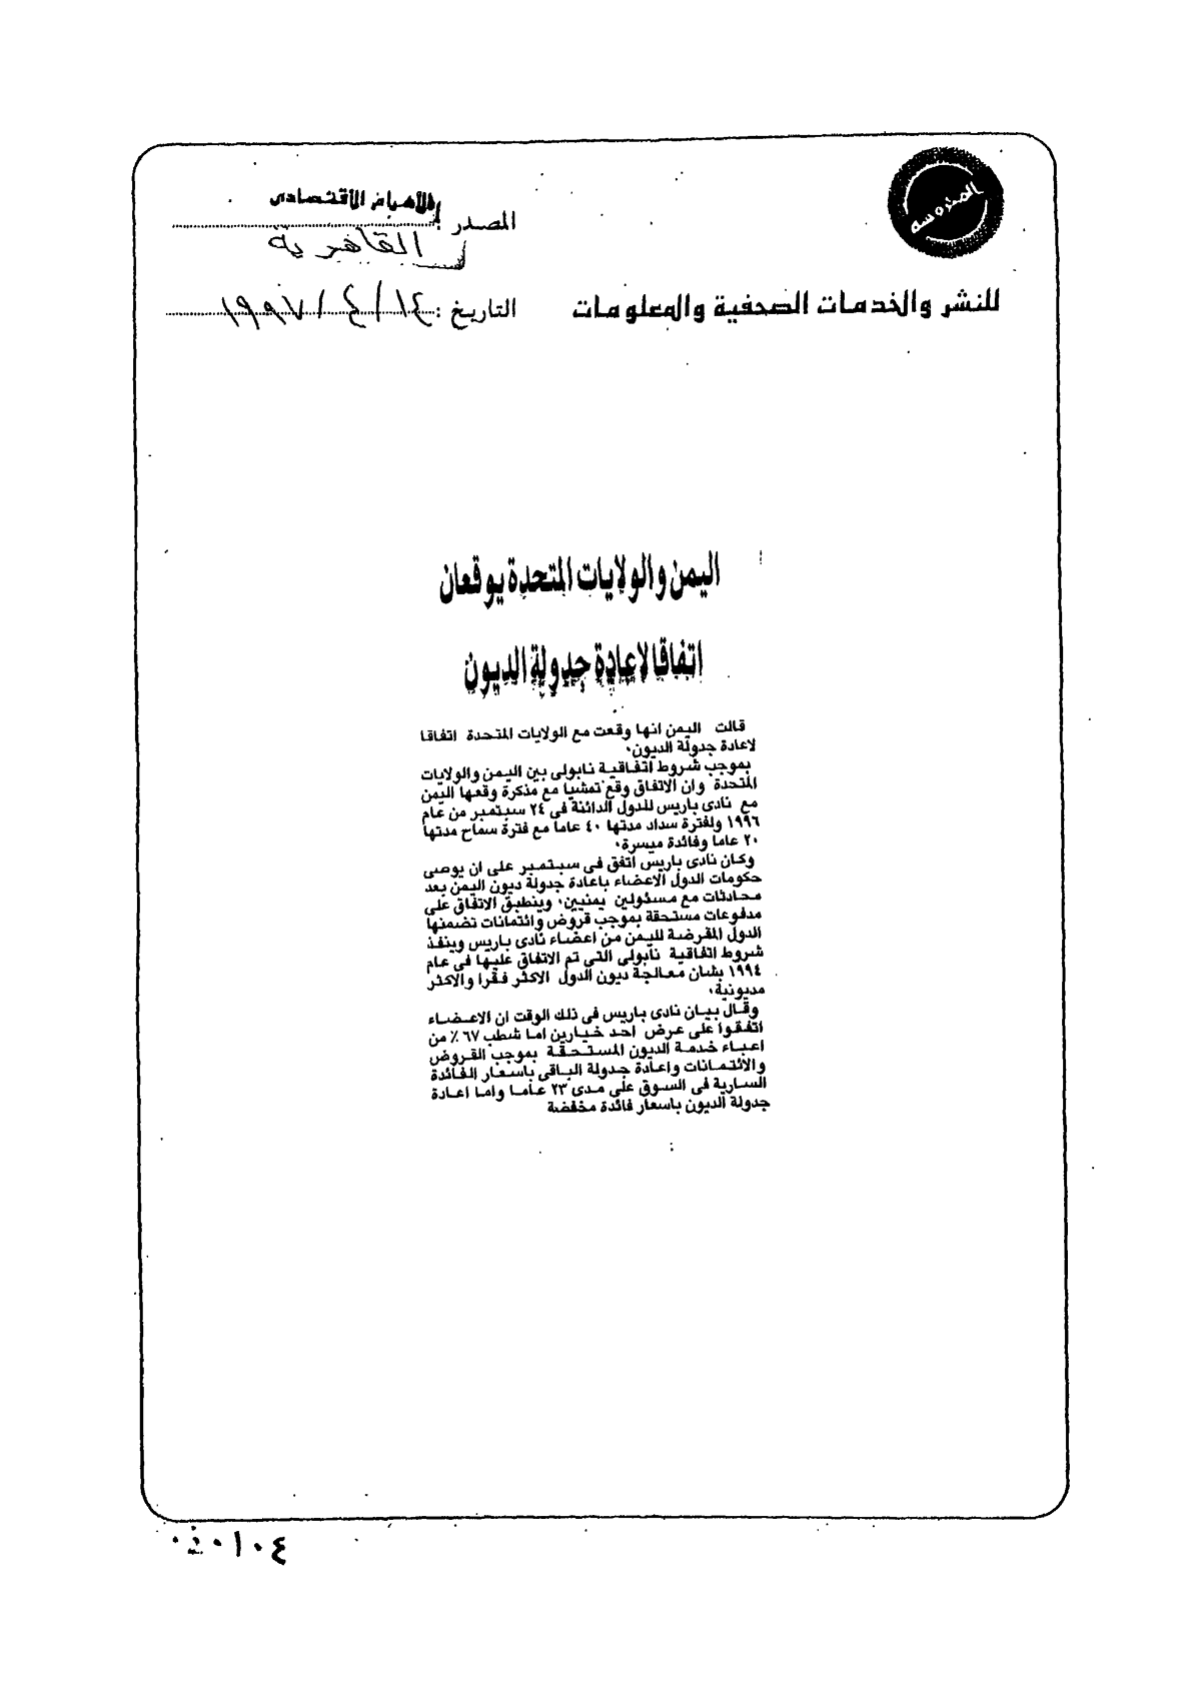 المحروسة
المصدر : الأهرام الاقتصادى
القاهرية
للنشر والخدمات الصحفية والمعلومات
التاريخ : ١٤ / ٤ / ١٩٩٧
اليمن والولايات المتحدة يوقعان
اتفاقا لاعادة جدولة الديون
قالت اليمن انها وقعت مع الولايات المتحدة اتفاقا
لاعادة جدولة الديون.
بموجب شروط اتفاقية نابولى بين اليمن والولايات
المتحدة وان الاتفاق وقع تمشيا مع مذكرة وقعها اليمن
مع نادى باريس للدول الدائنة فى ٢٤ سبتمبر من عام
١٩٩٦ ولفترة سداد مدتها ٤٠ عاما مع فترة سماح مدتها
٢٠ عاما وفائدة ميسرة.
وكان نادى باريس اتفق فى سبتمبر على ان يوصى
حكومات الدول الاعضاء باعادة جدولة ديون اليمن بعد
محادثات مع مسئولين يمنيين، وينطبق الاتفاق على
مدفوعات مستحقة بموجب قروض وائتمانات تضمنها
الدول المقرضة لليمن من اعضاء نادى باريس وينفذ
شروط اتفاقية نابولى التي تم الاتفاق عليها فى عام
١٩٩٤ بشان معالجة ديون الدول الاكثر فقرا والاكثر
مديونية.
وقال بيان نادى باريس فى ذلك الوقت ان الاعضاء
اتفقوا على عرض احد خيارين اما شطب ٦٧ ٪ من
اعباء خدمة الديون المستحقة بموجب القروض
والائتمانات واعادة جدولة الباقى باسعار الفائدة
السارية فى السوق على مدى ٢٣ عاما واما اعادة
جدولة الديون باسعار فائدة مخفضة